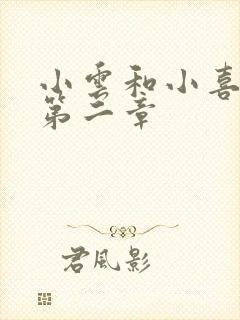 小雲和小喜
第二章
君風影